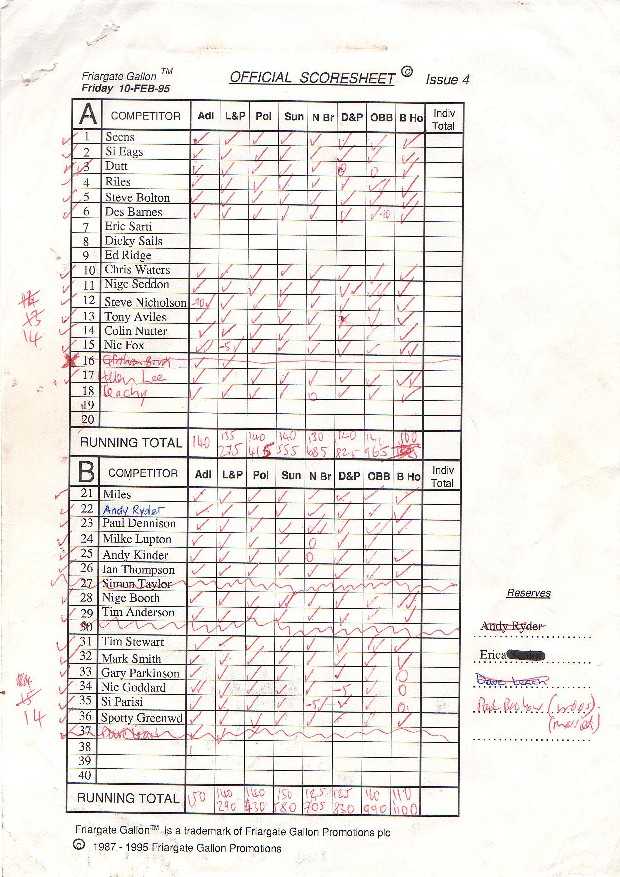 Friargate Gallon TM OFFICIAL SCORESHEET © Issue 4
Friday 10-FEB-95
A COMPETITOR Adl L&P Pol Sun N Br D&P OBB B Ho Indiv Total
1 Seens
2 Si Eags
3 Dutt
4 Riles
5 Steve Bolton
6 Des Barnes -10
7 Eric Sarti
8 Dicky Sails
9 Ed Ridge
10 Chris Waters
11 Nige Seddon
12 Steve Nicholson -10
13 Tony Aviles
14 14 Colin Nutter
15 Nic Fox -5
16
17 Lee
18 Leachy 0
19
20
RUNNING TOTAL 140 135 140 140 130 140 140
275 415 555 685 825 965
B COMPETITOR Adl L&P Pol Sun N Br D&P OBB B Ho Indiv Total
21 Miles
22 Andy Ryder
23 Paul Dennison
24 Milke Lupton 0
25 Andy Kinder 0
26 Ian Thompson
27 Simon Taylor
28 Nige Booth
29 Tim Anderson
30
31 Tim Stewart
32 Mark Smith
33 Gary Parkinson 0
34 Nic Goddard -5 0
35 Si Parisi -5 0
14 36 Spotty Greenwd
37
38
39
40
RUNNING TOTAL 150 140 140 150 125 125 160 110
290 430 580 705 830 990 1100
Reserves
Andy Ryder
Erica
Friargate Gallon TM is a trademark of Friargate Gallon Promotions plc
© 1987 - 1995 Friargate Gallon Promotions